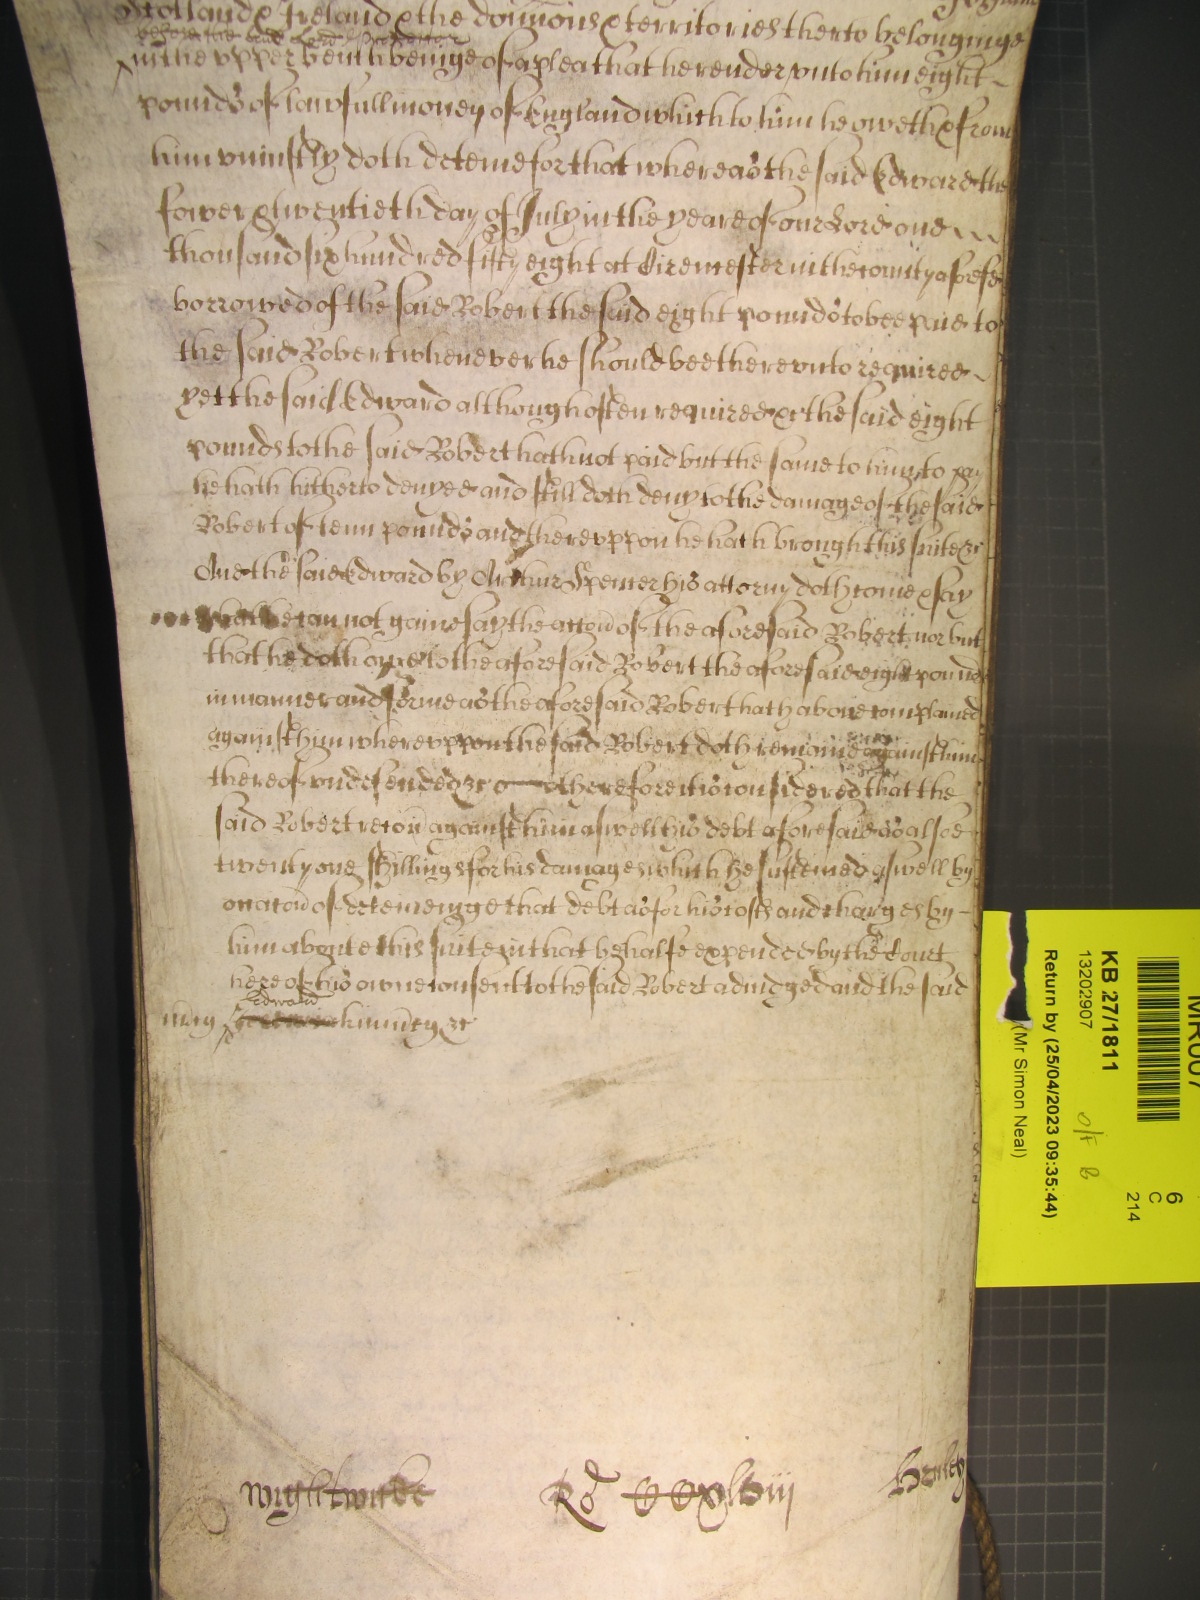 Scotland & Ireland & the dominions & territories therto belonginge
before the said Lord Protector
in the upper bench beinge of a plea that he render unto him eight
pounds of lawfull money of England which to him he oweth & from
him uniustly doth deteine for that whereas the said Edward the
fower & twentieth day of July in the yeare of our Lord one
thousand six hundred fifty eight at Cirencester in the county aforesd
borrowed of the said Robert the said eight pounds to bee paid to
the said Robert whenever he should bee thereunto required
yet the said Edward although often required &c the said eight
pounds to the said Robert hath not paid but the same to him to pay
he hath hitherto denyed and still doth deny to the damage of the said
Robert of tenn pounds and thereuppon he hath brought this suite &c
And the said Edward by Arthur Spencer his attorny doth come & say
that he can not gainesay the accon of the aforesaid Robert nor but
that he doth owe to the aforesaid Robert the aforesaid eight pounds
in manner and forme as the aforesaid Robert hath above complained
against him whereuppon the said Robert doth remaine against him
thereof undefended &c therefore it is considered that the
said Robert recou against him aswell his debt aforesaid as alsoe
twenty one shillings for his damages which he susteined aswell by
occacon of deteineinge that debt as for his costs and charges by
him aboute this suite in that behalfe expended by the Court
here of his owne consent to the said Robert adiudged and the said
Edward
mcy in mcy &c
Wightwicke Ro CCxlviii Henley
MR007
KB 27/1811
13202907
Return by (25/04/2023 09:35:44)
(Mr Simon Neal)
6
C
214